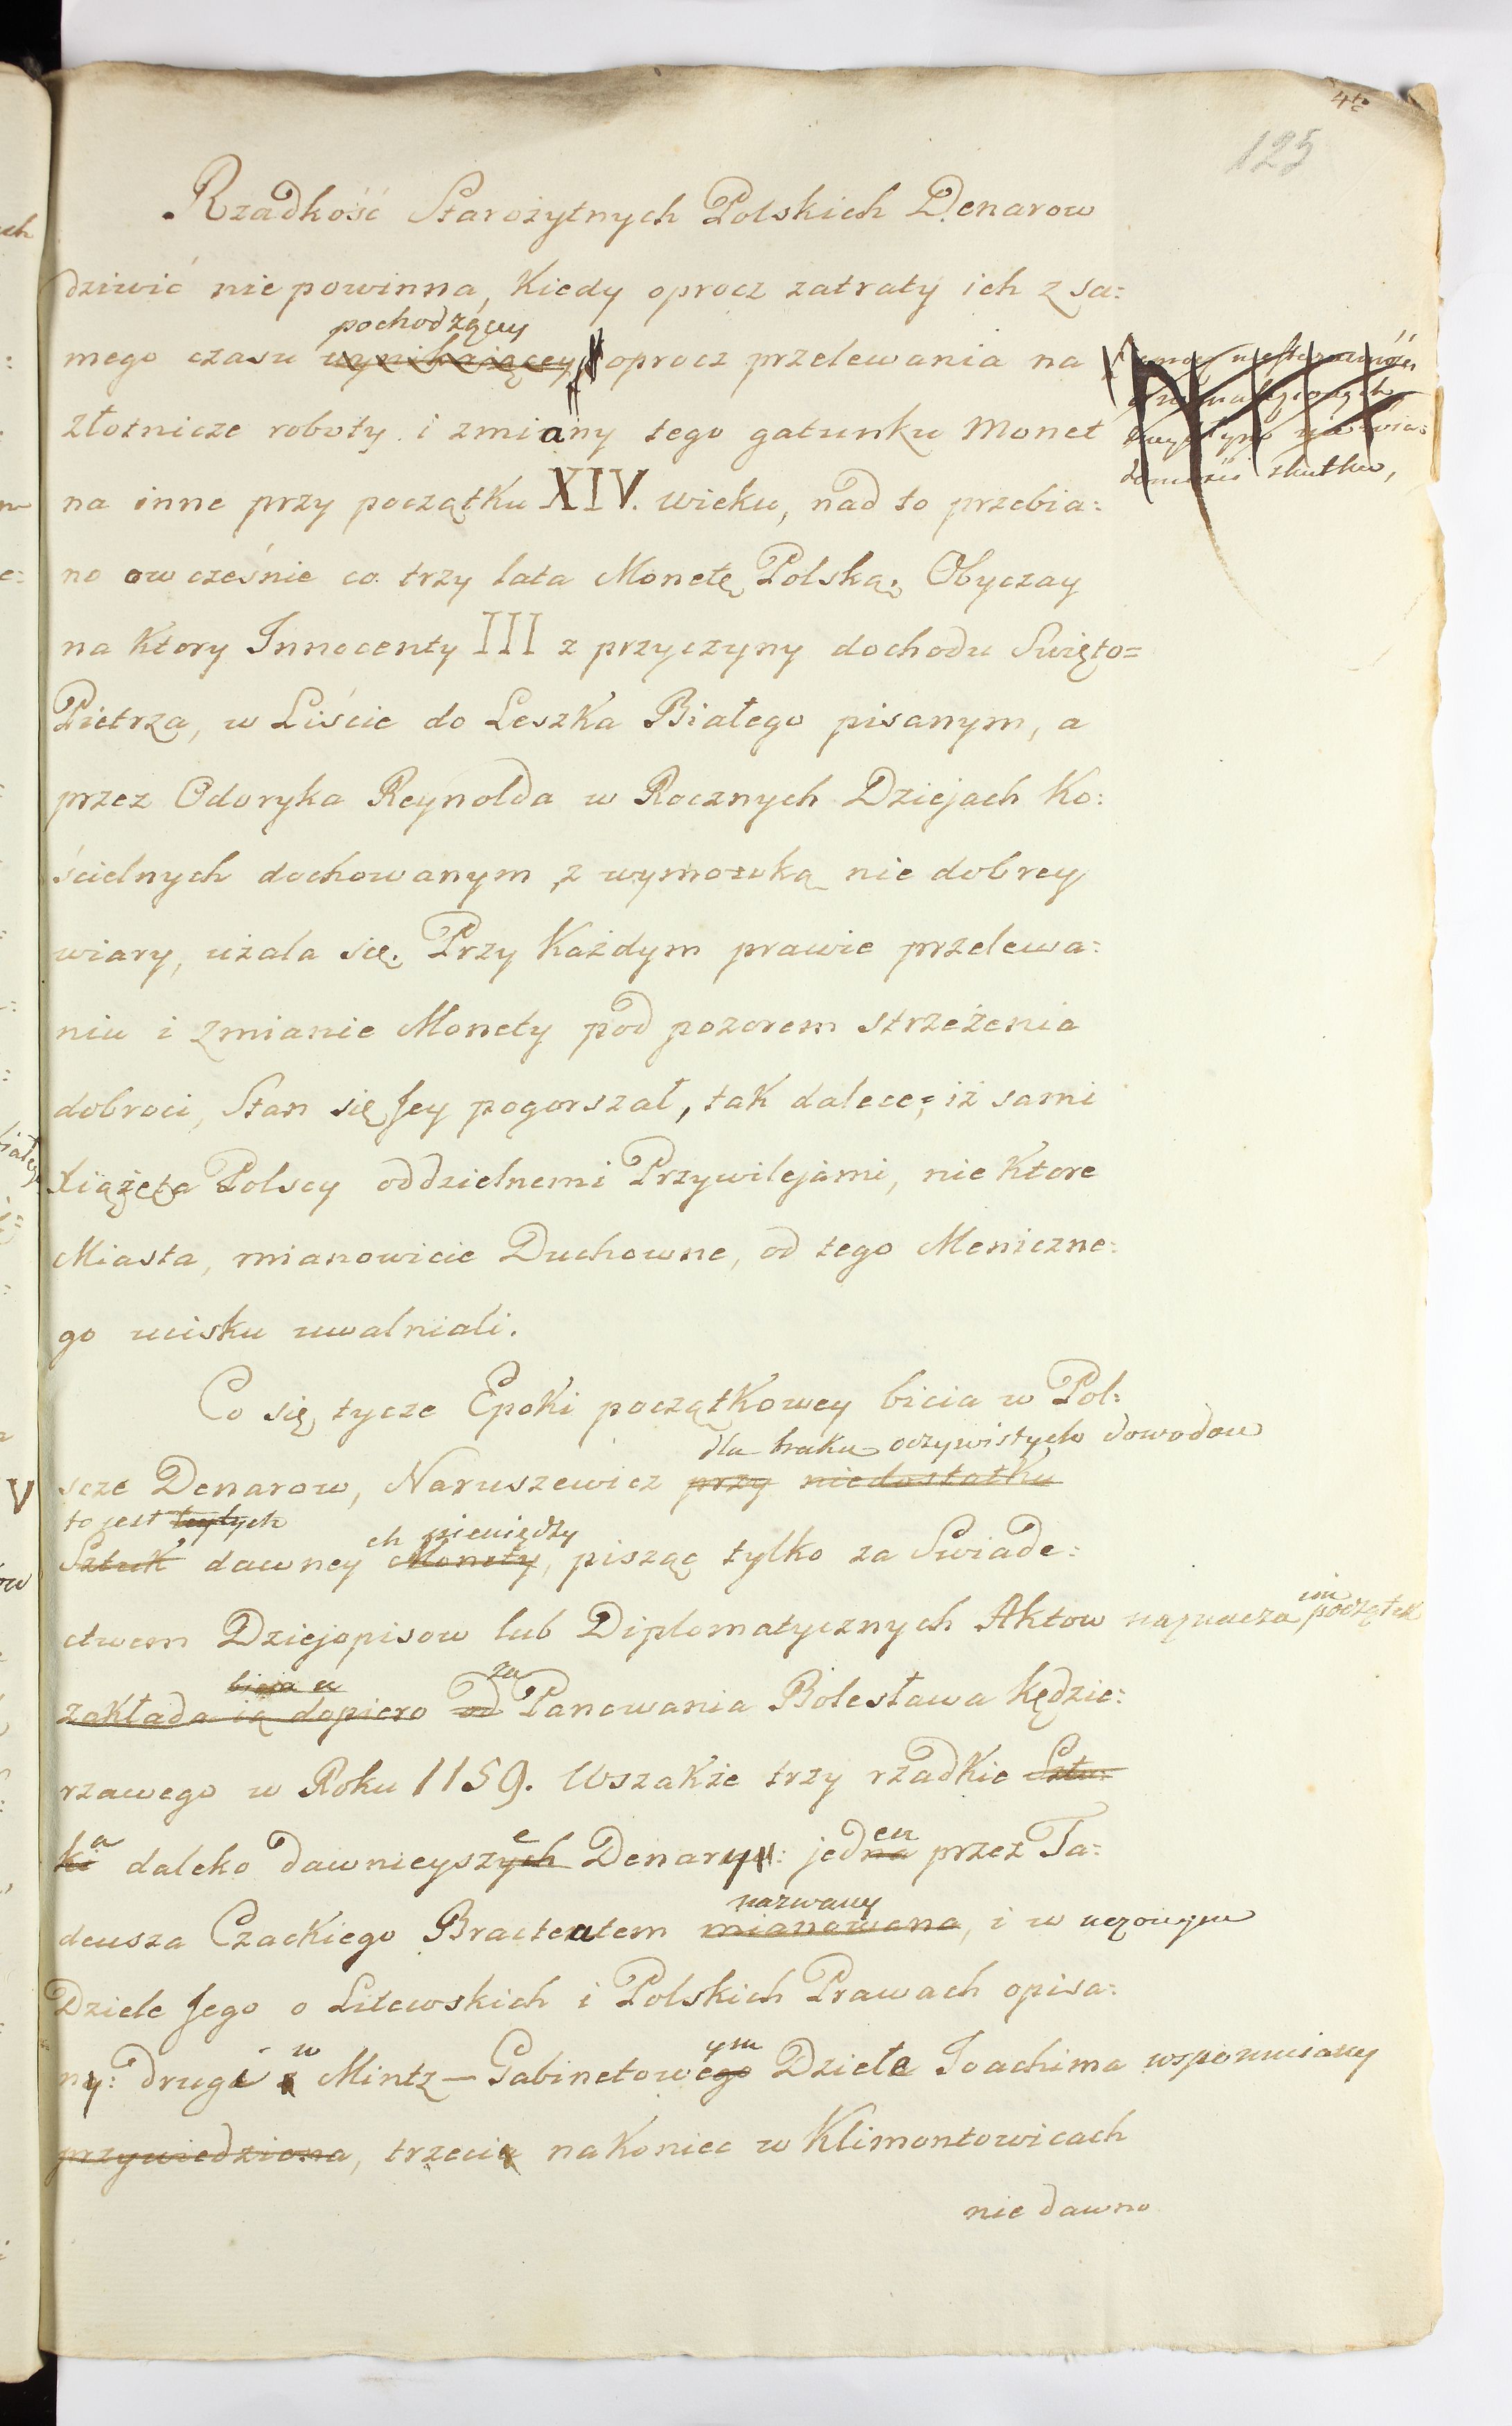 4to
125
Rzadkość Starożytnych Polskich Denarow
dziwić nie powinna, Kiedy oprocz zatraty ich z sa=
pochodzącey
mego czasu wynikaiącey, oprocz przelewania na
złotnicze roboty i zmiany tego gatunku Monet
skutku,
na inne przy początku XIV. wieku, nad to przebia=
no ow cześnie co trzy lata Monetę Polską; Obyczay
na Ktory Innocenty III z przyczyny dochodu Swięto=
Pietrza, w Liście do Leszka Białego pisanym, a
przez Odoryka Reynolda w Rocznych Dziejach Ko=
ścielnych dochowanym z wymowką nie dobrey
wiary, użala się. Przy Każdym prawie przelewa=
niu i zmianie Monety pod pozorem strzeżenia
dobroci, Stan się Jey pogorszał, tak dalece; iż sami
Xiążęta Polscy oddzielnemi Przywilejami, nie Ktore
Miasta, mianowicie Duchowne, od tego Meniczne=
go ucisku uwalniali.
Co się tycze Epoki początkowey bicia w Pol=
dla braku oczywistych dowodow
scze Denarow, Naruszewicz przy niedostatku
to jest
Sztuk dawney Monety, pisząc tylko za Swiade=
ch pieniędzy
ctwem Dziejopisow lub Diplomatycznych Aktow naznacza im początek
bicia
zakłada ią dopiero od Panowania Bolesława Kędzie=
za
rzawego w Roku 1159. Wszakże trzy rzadkie Sztu=
ki daleko dawnieyszych Denary: jedna przez Ta=
a e en
nazwany
deusza Czackiego Bracteatem mianowana, i w uczonym
Dziele Jego o Litewskich i Polskich Prawach opisa=
w ym
ny: drugi z Mintz-Gabinetowego Dziele Joachima wspomniany
przywiedziona, trzecia na Koniec w Klimontowicach
nie dawno